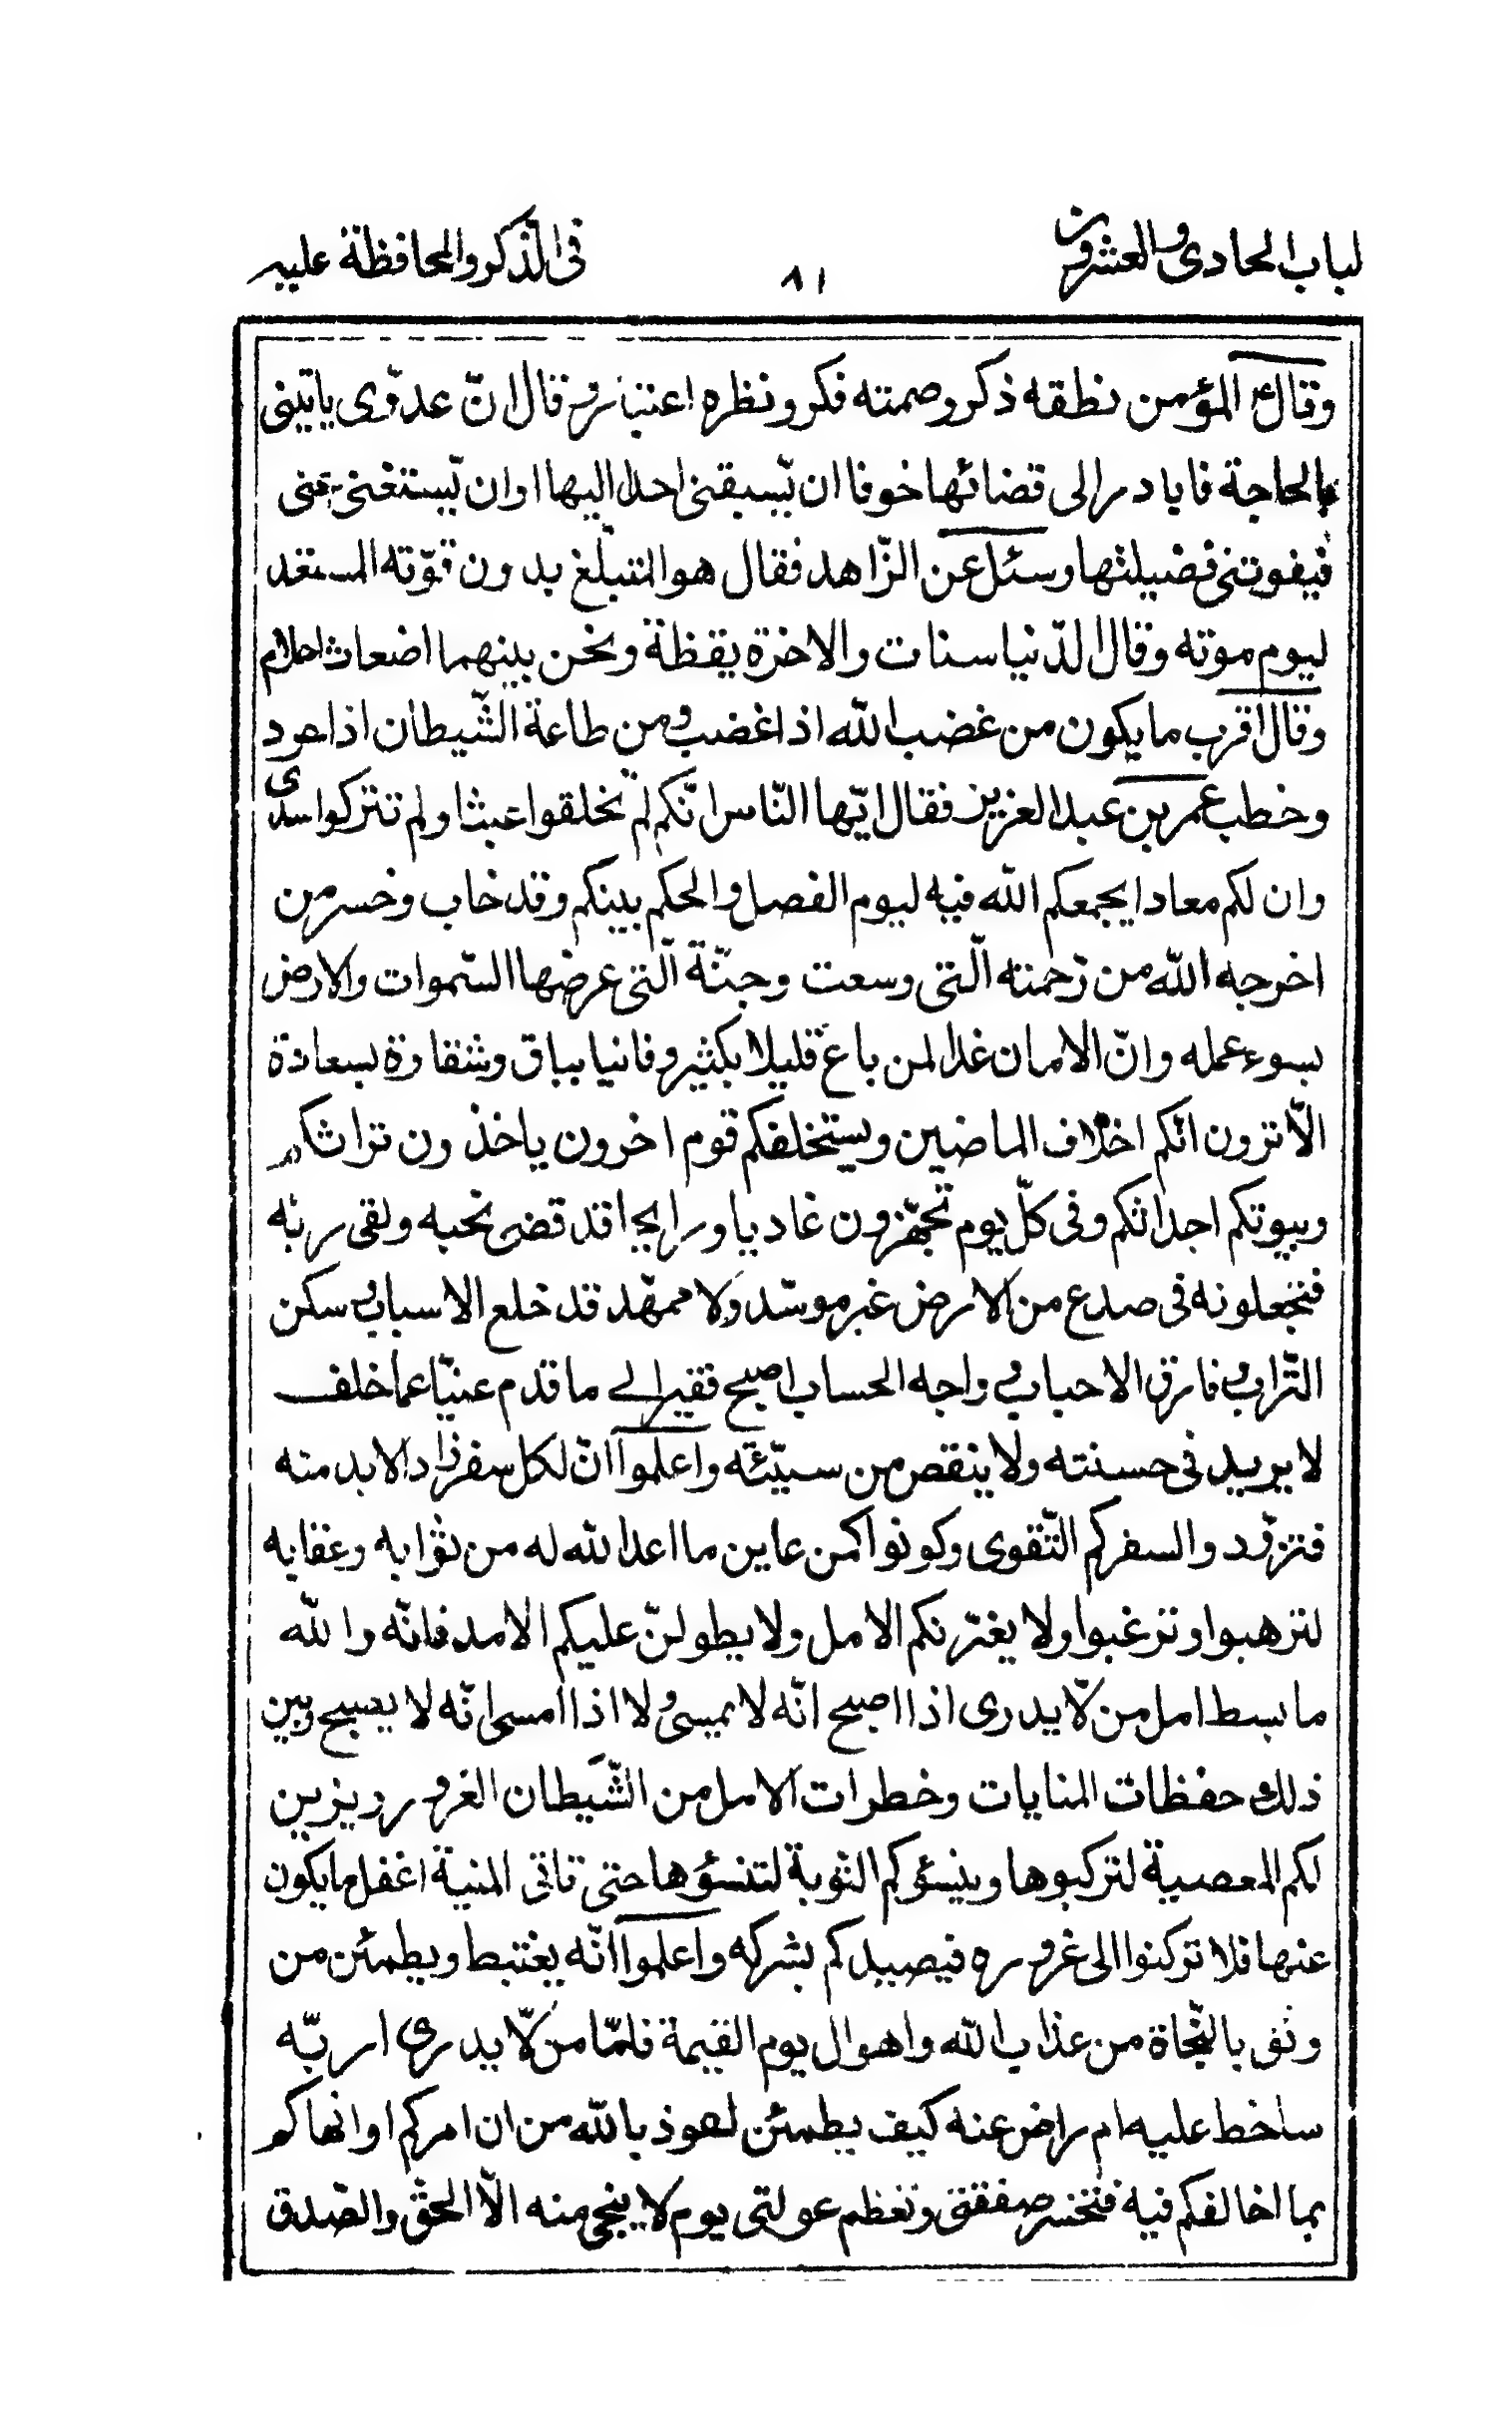 لباب الحادى والعشرون
٨١
فى الذّكر والمحافظة عليه
وقال ع المؤمن نطقه ذكر وصمته فكر ونظره اعتبار وقال انّ عدوّى ياتينى
بالحاجة فابادر الى قضائها خوفا ان يّسبقنى احد اليها او ان يّستغنى عنى
فيفوتنى فضيلتها وسئل عن الزّاهد فقال هو المتبلّغ بدون قوّته المستعد
ليوم موته وقال الدّنيا سنات والاخرة يقظة ونحن بينهما اضغاث احلام
وقال اقرب ما يكون من غضب الله اذا غضب ومن طاعة الشّيطان اذا حرد
وخطب عمر بن عبد العزيز فقال ايّها النّاس انّكم لم تخلقوا عبثا ولم تتركوا سدى
وان لكم معادا يجمعكم الله فيه ليوم الفصل والحكم بينكم وقد خاب وخسر من
اخرجه الله من رّحمته الّتى وسعت وجنّة الّتى عرضها السّموات والارض
بسوء عمله وانّ الامان غدا لمن باع قليلا بكثير وفانيا بباق وشقاوة بسعادة
الّا ترون انّكم اخلاف الماضين ويستخلفكم قوم اخرون ياخذون تراثكم
وبيوتكم اجداثكم وفى كلّ يوم تجهّزون غاديا ورايحا قد قضى نحبه ولقى ربّه
فتجعلونه فى صدع من الارض غير موسّد ولا ممهّد قد خلع الاسباب وسكن
التّراب وفارق الاحباب وواجه الحساب اصبح فقيرا الى ما قدّم غنيّا عما خلف
لا يريد فى حسنته ولا ينقص من سيّئته واعلموا انّ لكل سفر زادا لا بد منه
فتزوّد والسفركم التّقوى وكونوا كمن عاين ما اعد الله له من ثوابه وعقابه
لترهبوا وترغبوا ولا يغرّنكم الامل ولا يطولنّ عليكم الامد فانّه والله
ما بسط امل من لّا يدرى اذا اصبح انّه لا يمسى ولا اذا امسى انّه لا يصبح وبين
ذلك حفظات المنايات وخطرات الامل من الشّيطان الغرور ويزين
لكم المعصية لتركبوها وينسؤكم التوبة لتنسؤها حتى تاتى المنية اغفل ما يكون
عنها فلا تركنوا الى غروره فيصيدكم بشركه واعلموا انّه يغتبط ويطمئن من
وثق بالنّجاة من عذاب الله واهوال يوم القيمة فلمّا من لّا يدرى اربّه
ساخط عليه ام راض عنه كيف يطمئن لعوذ بالله من ان امركم او انهاكم
بما اخالفكم فيه فتخسر صفقتى وتعظم عولتى يوم لا ينجى منه الّا الحقّ والصّدق